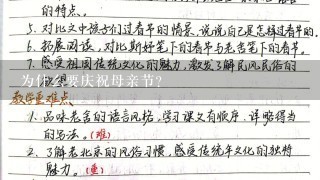 的特点。
5. 对比文中孩子们过春节的情景,说说自己是怎样过春节的。
6. 拓展阅读,对比斯好笔下的春节与老舍笔下的春节。
7. 感受祖国传统文化的魅力,激发了解民风民俗的
为什么要庆祝母亲节?
教学重难点
1. 品味老舍的语言风格,学习课文有顺序、详略得当
的写法。(难)
2. 了解老北京的风俗习惯,感受传统年文化的独特
魅力。(重)